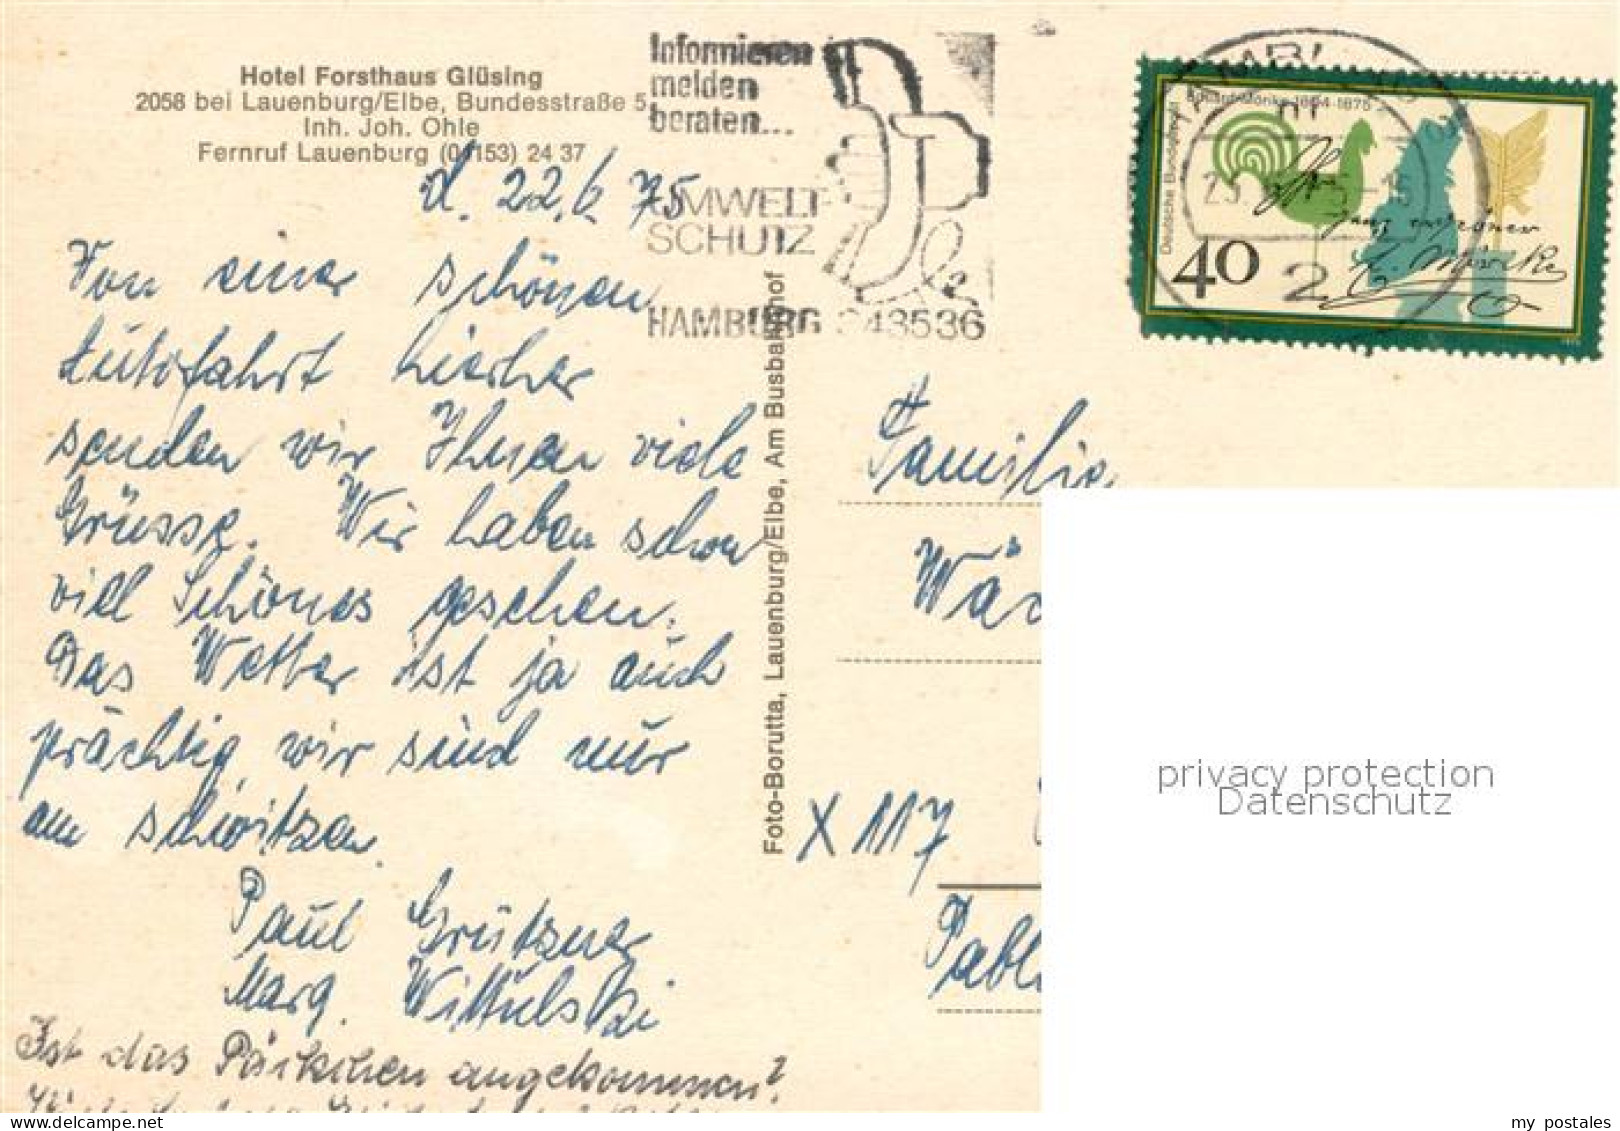 Hotel Forsthaus Glüsing
2058 bei Lauenburg/Elbe, Bundesstraße 5
Inh. Joh. Ohle
Fernruf Lauenburg (04153) 24 37
Informieren
melden
beraten...
UMWELT-
SCHUTZ
HAMBURG 243536
Deutsche Bundespost
Eduard Mörike 1804-1875
40
E. Mörike
2
d. 22.6.75
Von einer schönen
Autofahrt hierher
senden wir Ihnen viele
Grüsse. Wir haben schon
viel Schönes gesehen.
Das Wetter ist ja auch
prächtig, wir sind nur
am schwitzen.
Paul Grützner
Marg. Wittulski
Ist das Päckchen angekommen?
Foto-Borutta, Lauenburg/Elbe, Am Busbahnhof
Familie
Wäc
X 117
Pabl
privacy protection
Datenschutz
my postales